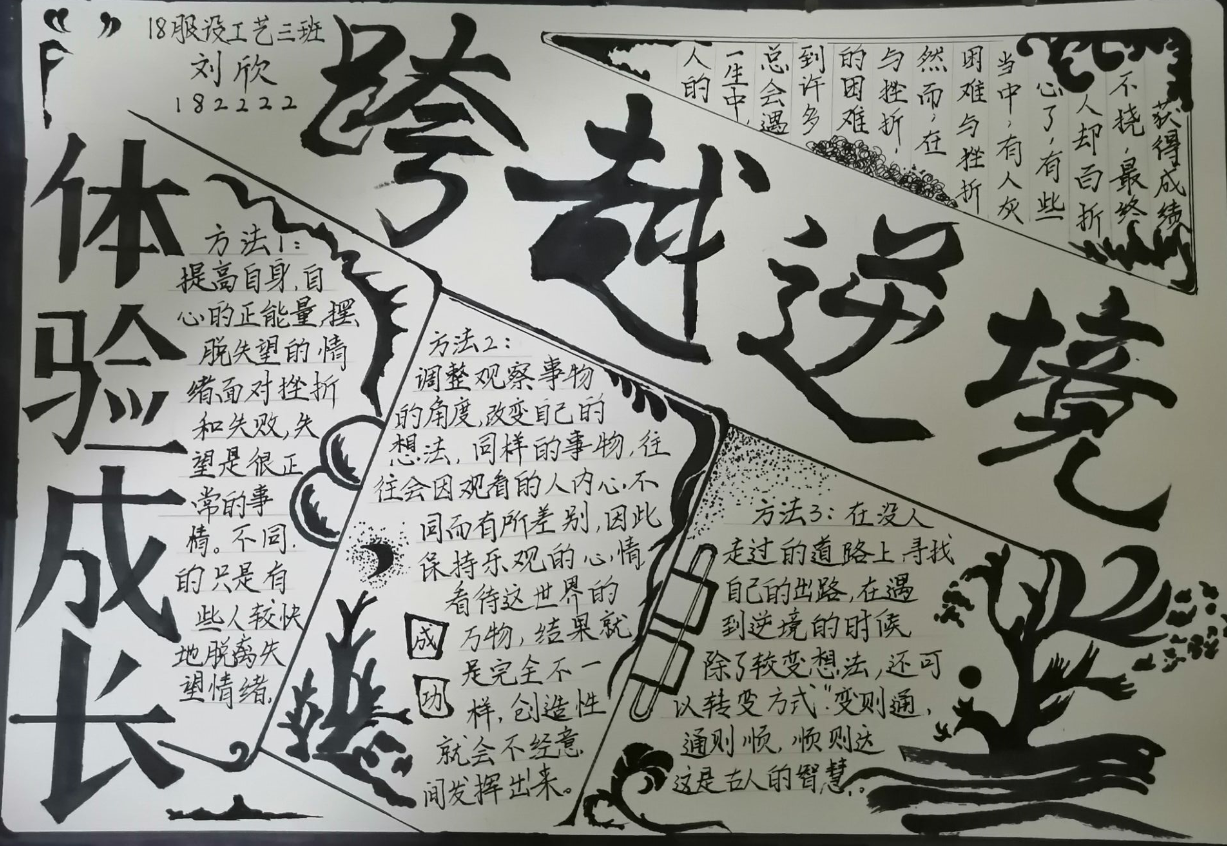 18服设工艺三班
刘欣
182222
跨越逆境
体验成长
人的
一生中,
总会遇
到许多
的困难
与挫折,
然而,在
困难与挫折
当中,有人灰
心了,有些
人却百折
不挠,最终
获得成绩
方法1:
提高自身,自
心的正能量,摆
脱失望的情
绪面对挫折
和失败,失
望是很正
常的事
情。不同,
的只是有
些人较快
地脱离失
望情绪,
方法2:
调整观察事物
的角度,改变自己的
想法,同样的事物,往
往会因观看的人内心不
同而有所差别,因此
保持乐观的心情
看待这世界的
万物,结果就
是完全不一
样,创造性
就会不经意
间发挥出来。
成
功
方法3:在没人
走过的道路上,寻找
自己的出路,在遇
到逆境的时候
除了较变想法,还可
以转变方式“变则通,
通则顺,顺则达
这是古人的智慧。